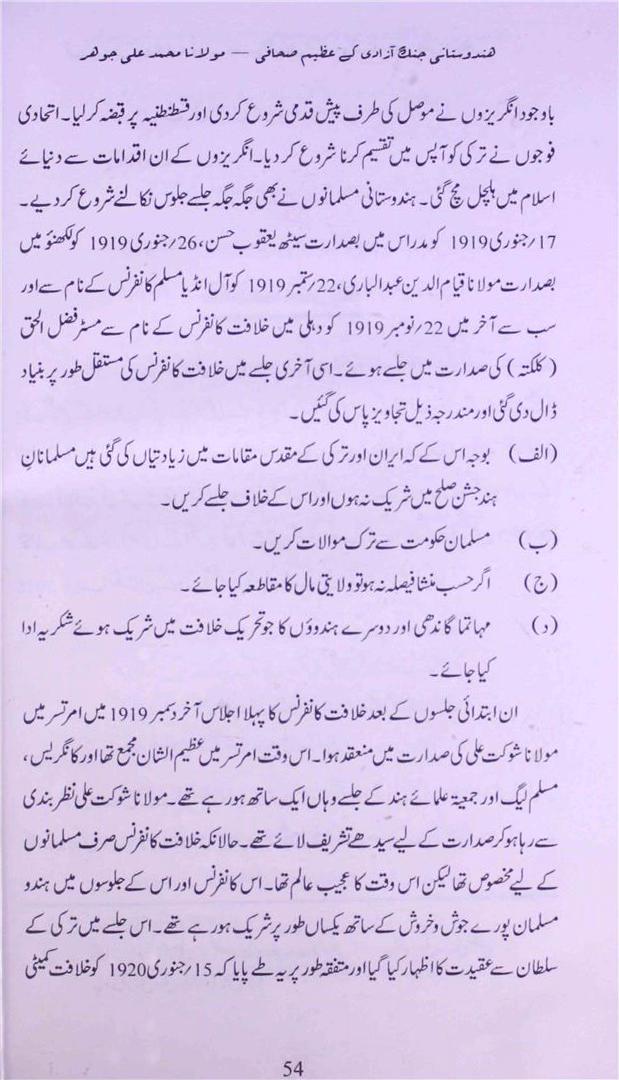 ہندوستانی جنگ آزادی کے عظیم صحافی — مولانا محمد علی جوہر
باوجود انگریزوں نے موصل کی طرف پیش قدمی شروع کردی اور قسطنطنیہ پر قبضہ کرلیا۔ اتحادی
فوجوں نے ترکی کو آپس میں تقسیم کرنا شروع کر دیا۔ انگریزوں کے ان اقدامات سے دنیائے
اسلام میں ہلچل مچ گئی۔ ہندوستانی مسلمانوں نے بھی جگہ جگہ جلسے جلوس نکالنے شروع کردیے۔
17؍جنوری 1919 کو مدراس میں بصدارت سیٹھ یعقوب حسن، 26؍جنوری 1919 کو لکھنؤ میں
بصدارت مولانا قیام الدین عبدالباری، 22؍ستمبر 1919 کو آل انڈیا مسلم کانفرنس کے نام سے اور
سب سے آخر میں 22؍نومبر 1919 کو دہلی میں خلافت کانفرنس کے نام سے مسٹر فضل الحق
(کلکتہ) کی صدارت میں جلسے ہوئے۔ اسی آخری جلسے میں خلافت کانفرنس کی مستقل طور پر بنیاد
ڈال دی گئی اور مندرجہ ذیل تجاویز پاس کی گئیں۔
(الف) بوجہ اس کے کہ ایران اور ترکی کے مقدس مقامات میں زیادتیاں کی گئی ہیں مسلمانانِ
ہند جشن صلح میں شریک نہ ہوں اور اس کے خلاف جلسے کریں۔
(ب) مسلمان حکومت سے ترک موالات کریں۔
(ج) اگر حسب منشا فیصلہ نہ ہو تو ولایتی مال کا مقاطعہ کیا جائے۔
(د) مہاتما گاندھی اور دوسرے ہندوؤں کا جو تحریک خلافت میں شریک ہوئے شکریہ ادا
کیا جائے۔
ان ابتدائی جلسوں کے بعد خلافت کانفرنس کا پہلا اجلاس آخر دسمبر 1919 میں امرتسر میں
مولانا شوکت علی کی صدارت میں منعقد ہوا۔ اس وقت امرتسر میں عظیم الشان مجمع تھا اور کانگریس،
مسلم لیگ اور جمعیۃ علمائے ہند کے جلسے وہاں ایک ساتھ ہورہے تھے۔ مولانا شوکت علی نظر بندی
سے رہا ہوکر صدارت کے لیے سیدھے تشریف لائے تھے۔ حالانکہ خلافت کانفرنس صرف مسلمانوں
کے لیے مخصوص تھا لیکن اس وقت کا عجیب عالم تھا۔ اس کانفرنس اور اس کے جلوسوں میں ہندو
مسلمان پورے جوش و خروش کے ساتھ یکساں طور پر شریک ہورہے تھے۔ اس جلسے میں ترکی کے
سلطان سے عقیدت کا اظہار کیا گیا اور متفقہ طور پر یہ طے پایا کہ 15؍جنوری 1920 کو خلافت کمیٹی
54